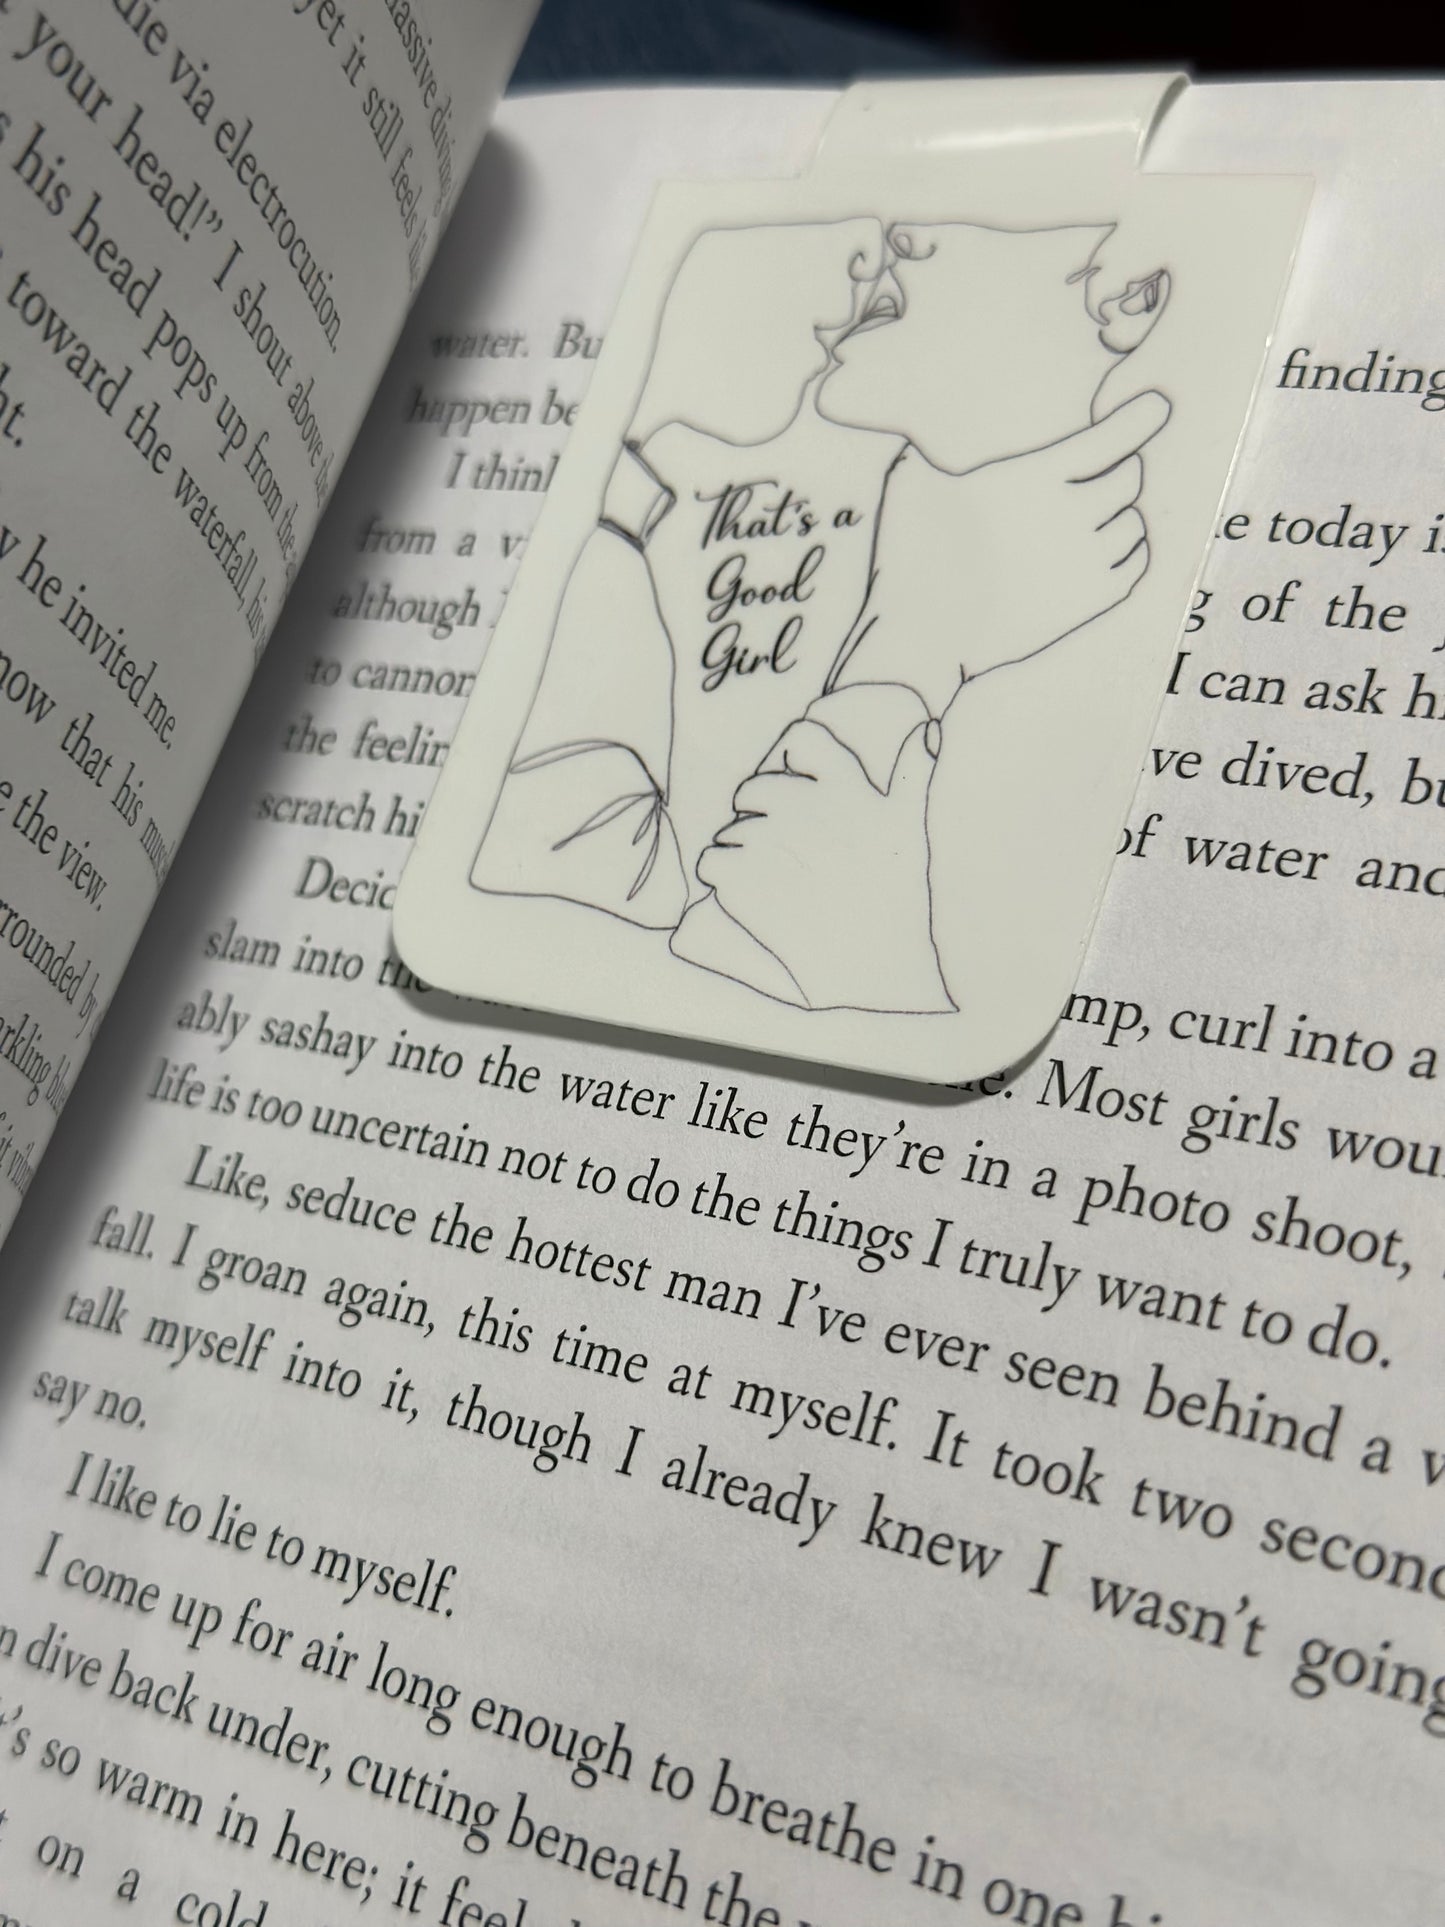 massive diving
yet it still feels like
die via electrocution.
your head!” I shout above the
his head pops up from the
toward the waterfall, his
he invited me.
now that his
the view.
That's a
Good
Girl
water. But finding
happen be
I think today is
from a of the
although I can ask
to cannon ve dived, bu
the feelin of water and
scratch hi
Decid mp, curl into a
slam into the Most girls wou
ably sashay into the water like they’re in a photo shoot,
life is too uncertain not to do the things I truly want to do.
Like, seduce the hottest man I’ve ever seen behind a
fall. I groan again, this time at myself. It took two second
talk myself into it, though I already knew I wasn’t going
say no.
I like to lie to myself.
I come up for air long enough to breathe in one
dive back under, cutting beneath the
’s so warm in here; it feel
on a cold